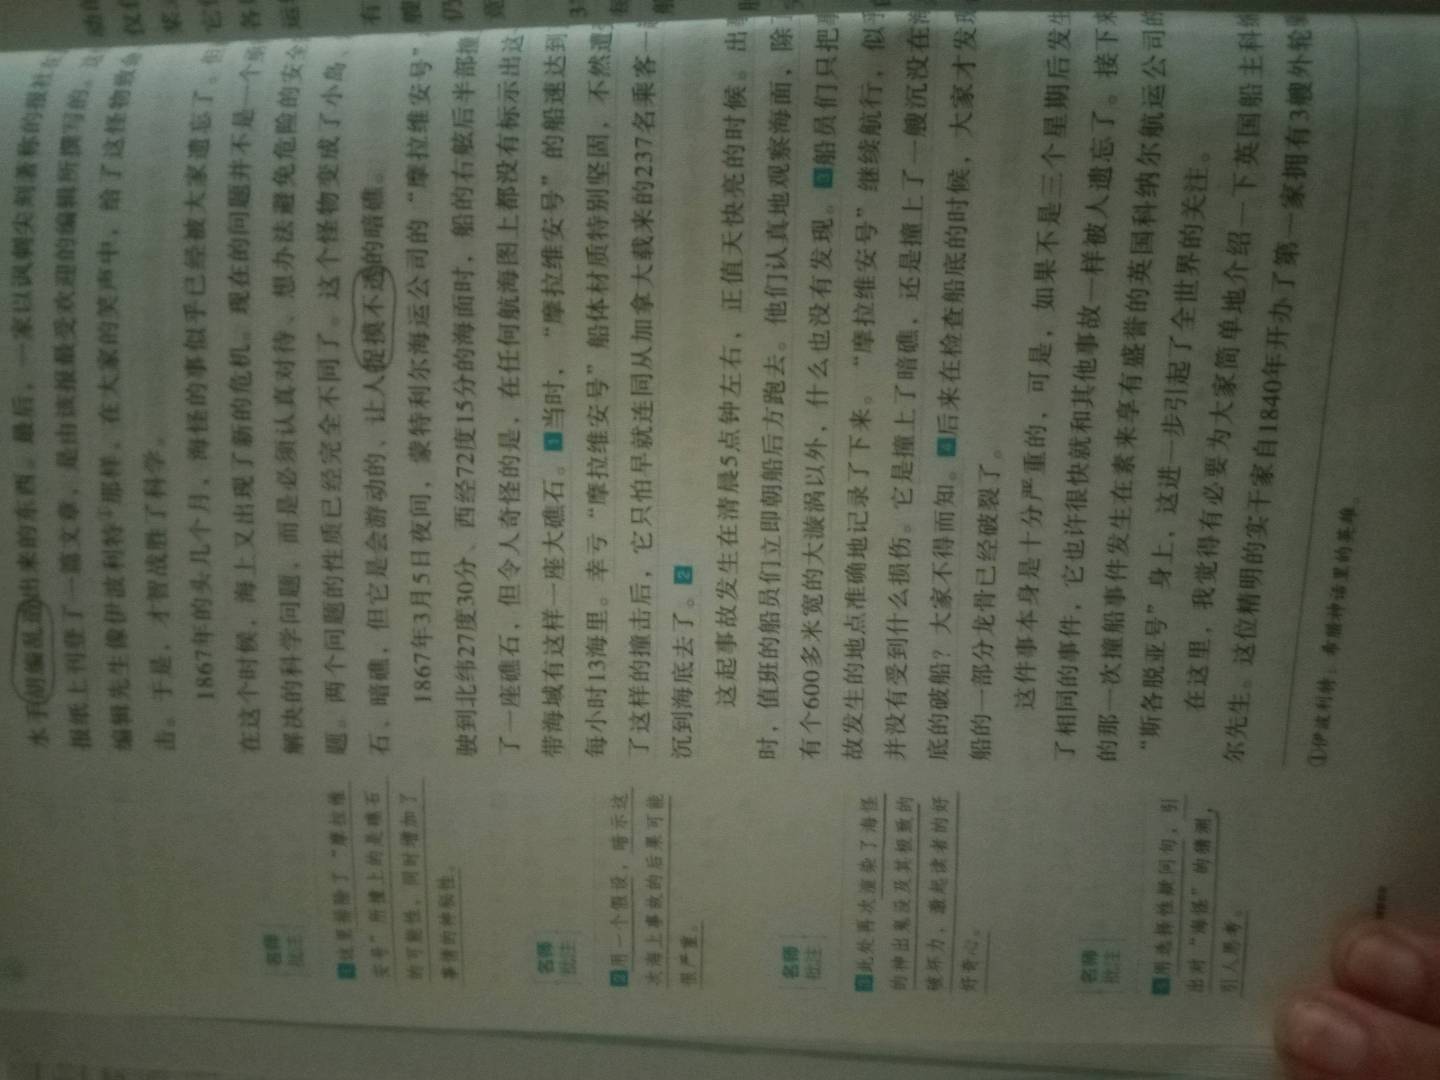 水手胡编乱造出来的东西。最后，一家以讽刺尖刻著称的报社在
报纸上刊登了一篇文章，是由该报最受欢迎的编辑所撰写的。这
编辑先生像伊波利特①那样，在大家的笑声中，给了这怪物致命
击。于是，才智战胜了科学。
1867年的头几个月，海怪的事似乎已经被大家遗忘了。但
在这个时候，海上又出现了新的危机。现在的问题并不是一个
解决的科学问题，而是必须认真对待、想办法避免危险的安全
题。两个问题的性质已经完全不同了。这个怪物变成了小岛、
石、暗礁，但它是会游动的、让人捉摸不透的暗礁。
1867年3月5日夜间，蒙特利尔海运公司的“摩拉维安号”
驶到北纬27度30分、西经72度15分的海面时，船的右舷后半部撞
了一座礁石，但令人奇怪的是，在任何航海图上都没有标示出这
带海域有这样一座大礁石。1当时，“摩拉维安号”的船速达到
每小时13海里。幸亏“摩拉维安号”船体材质特别坚固，不然遭
了这样的撞击后，它只怕早就连同从加拿大载来的237名乘客一
沉到海底去了。2
这起事故发生在清晨5点钟左右，正值天快亮的时候。出
时，值班的船员们立即朝船后方跑去。他们认真地观察海面，除
有个600多米宽的大漩涡以外，什么也没有发现。3船员们只把
故发生的地点准确地记录了下来。“摩拉维安号”继续航行，似乎
并没有受到什么损伤。它是撞上了暗礁，还是撞上了一艘沉没在海
底的破船？大家不得而知。4后来在检查船底的时候，大家才发现
船的一部分龙骨已经破裂了。
这件事本身是十分严重的，可是，如果不是三个星期后发生
了相同的事件，它也许很快就和其他事故一样被人遗忘了。接下来
的那一次撞船事件发生在素来享有盛誉的英国科纳尔航运公司的
“斯各脱亚号”身上，这进一步引起了全世界的关注。
在这里，我觉得有必要为大家简单地介绍一下英国船主科纳
尔先生。这位精明的实干家自1840年开办了第一家拥有3艘外轮
①伊波利特：希腊神话里的英雄。
名师
批注
1这里排除了“摩拉维
安号”所撞上的是礁石
的可能性，同时增加了
事情的神秘性。
名师
批注
2用一个假设，暗示这
次海上事故的后果可能
很严重。
名师
批注
3此处再次渲染了海怪
的神出鬼没及其极致的
破坏力，激起读者的好
好奇心。
名师
批注
4用选择性疑问句，引
出对“海怪”的猜测，
引人思考。